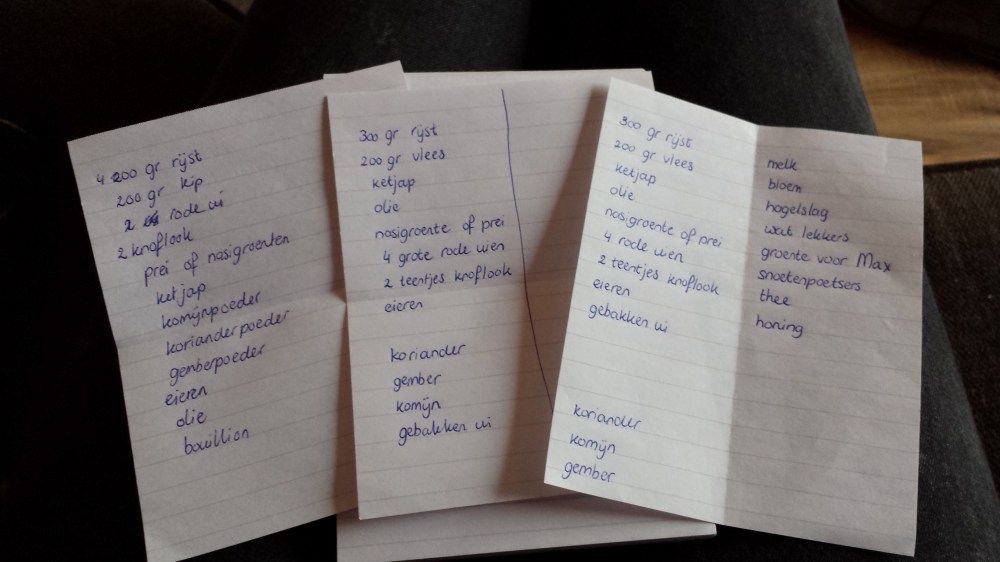 4 200 gr rijst
200 gr kip
2 rode ui
2 knoflook
prei of nasigroenten
ketjap
komijnpoeder
korianderpoeder
gemberpoeder
eieren
olie
bouillion
300 gr rijst
200 gr vlees
ketjap
olie
nasigroente of prei
4 grote rode uien
2 teentjes knoflook
eieren
koriander
gember
komijn
gebakken ui
300 gr rijst
200 gr vlees
ketjap
olie
nasigroente of prei
4 rode uien
2 teentjes knoflook
eieren
gebakken ui
koriander
komijn
gember
melk
bloem
hagelslag
wat lekkers
groente voor Max
snoetenpoetsers
thee
honing